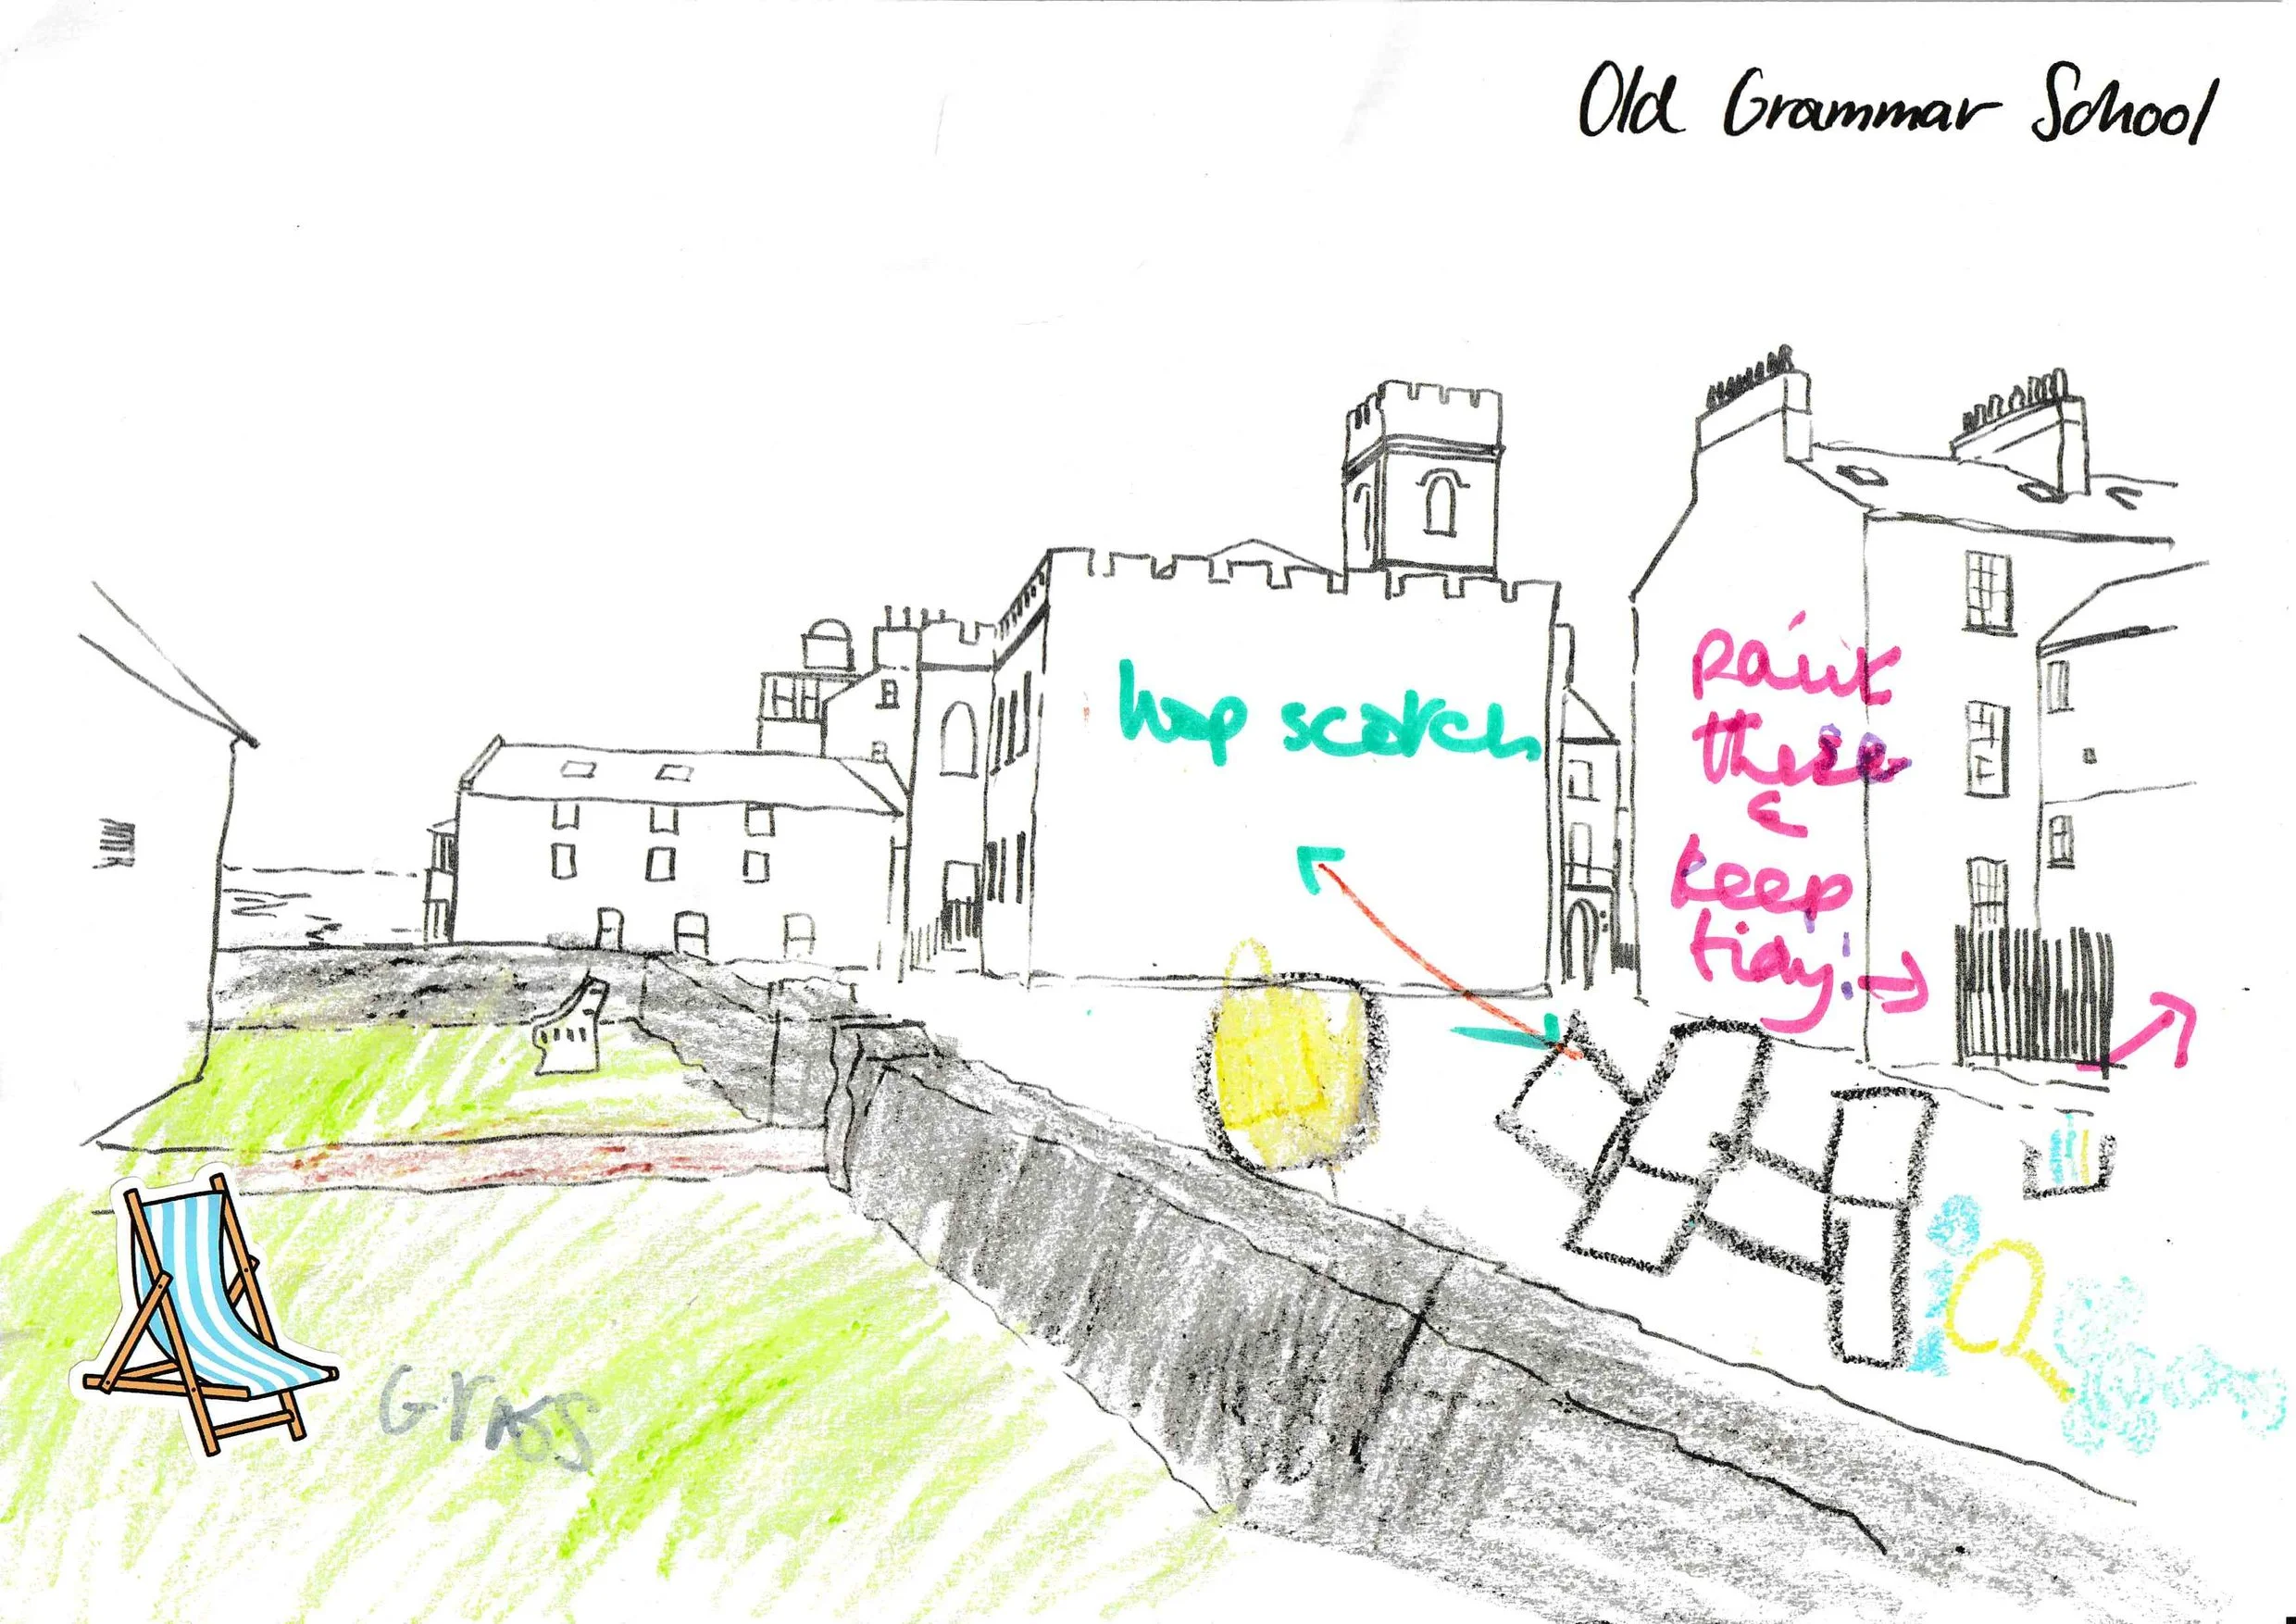 Old Grammar School
hop scotch
paint
these
&
keep
tidy!
Grass